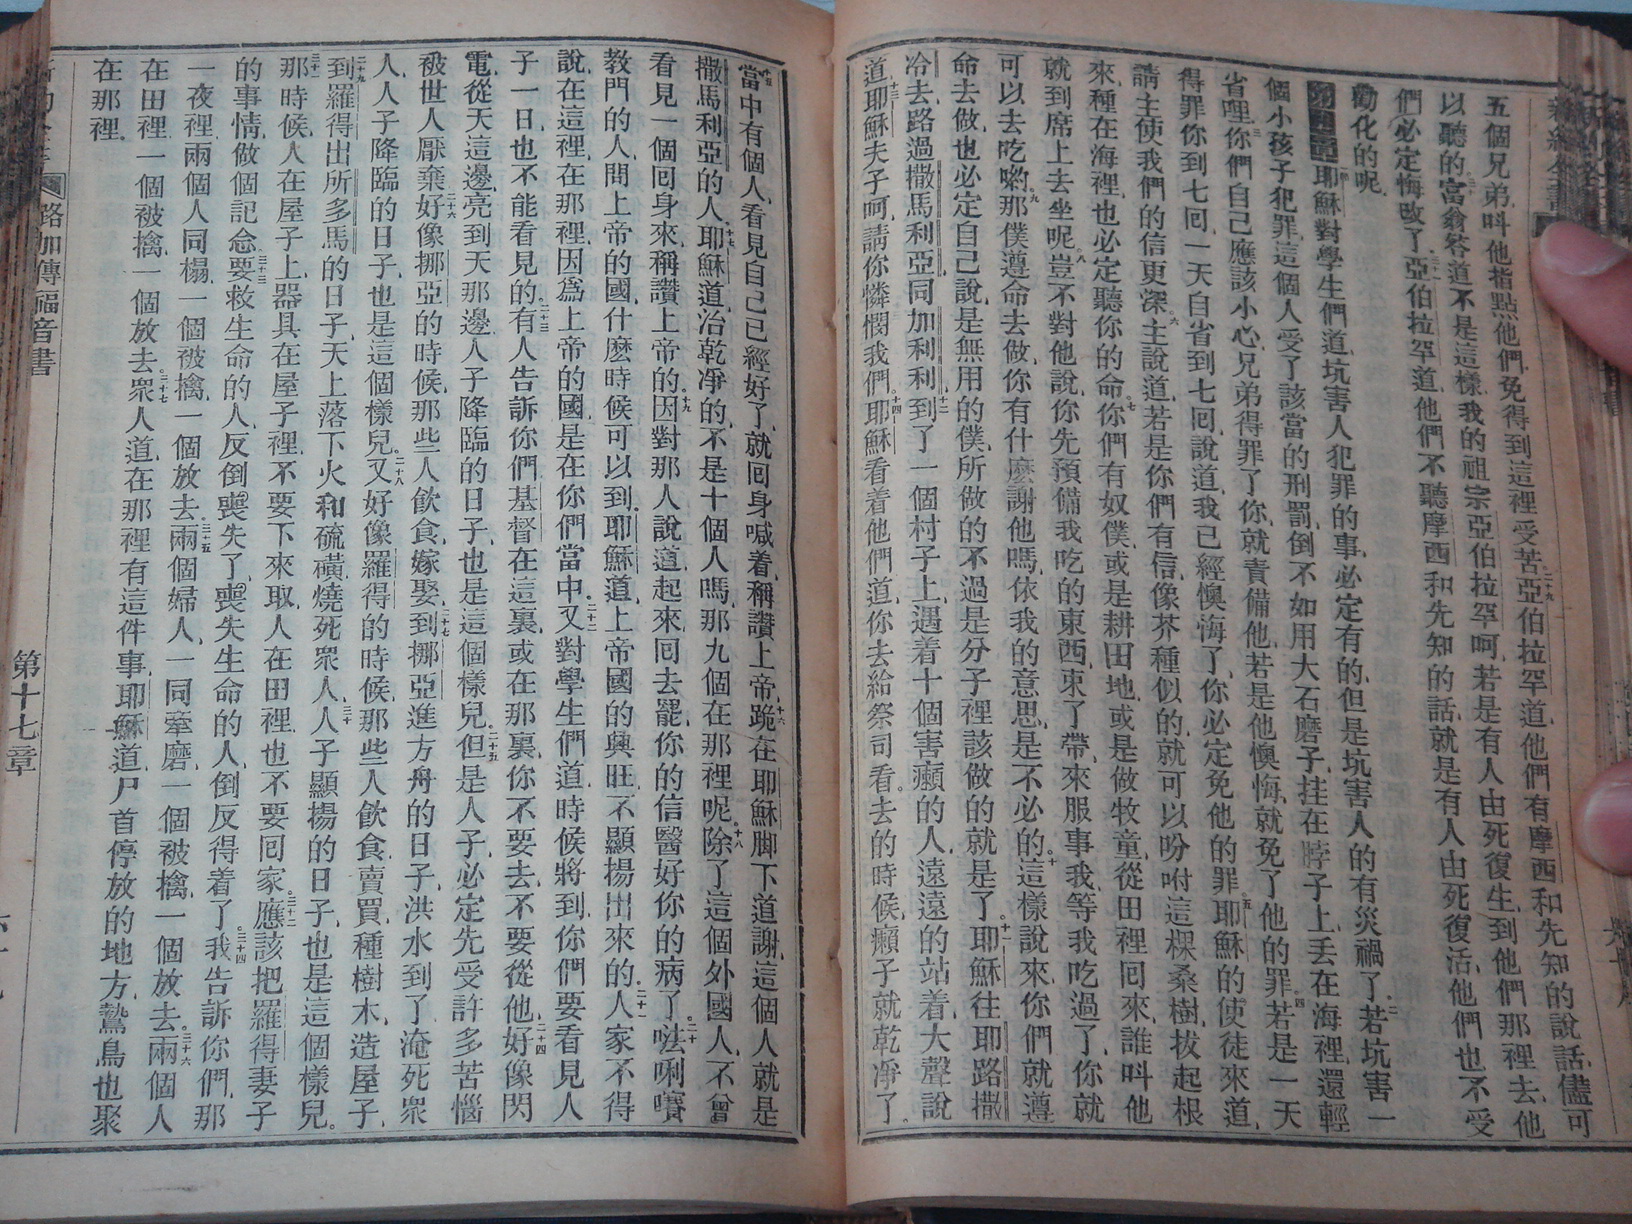 五個兄弟、叫他指點他們、免得到這裡受苦、二十九亞伯拉罕道、他們有摩西和先知的說話、儘可
以聽的、三十富翁答道、不是這樣、我的祖宗亞伯拉罕呵、若是有人由死復生、到他們那裡去、他
們必定悔改了、三十一亞伯拉罕道、他們不聽摩西和先知的話、就是有人由死復活、他們也不受
勸化的呢、
耶穌對學生們道、坑害人犯罪的事、必定有的、但是坑害人的有災禍了、二若坑害一
個小孩子犯罪、這個人受了該當的刑罰、倒不如用大石磨子、挂在脖子上、丟在海裡、還輕
省哩、三你們自己應該小心、兄弟得罪了你、就責備他、若是他懊悔、就免了他的罪、四若是一天
得罪你到七回、一天自省到七回、說道、我已經懊海了、你必定免他的罪、五耶穌的使徒來道、
請主使我們的信更深、六主說道、若是你們有信像芥種似的、就可以吩咐這棵桑樹、拔起根
來、種在海裡、也必定聽你的命、七你們有奴僕、或是耕田地、或是做牧童、從田裡回來、誰叫他
就到席上去坐呢、八豈不對他說、你先預備我吃的東西、束了帶、來服事我、等我吃過了、你就
可以去吃喲、九那僕遵命去做、你有什麼謝他嗎、依我的意思、是不必的、十這樣說來、你們就遵
命去做、也必定自己說、是無用的僕、所做的不過是分子裡該做的就是了、十一耶穌往耶路撒
冷去、路過撒馬利亞同加利利、十二到了一個村子上、遇着十個害癩的人、遠遠的站着、大聲說
道、十三耶穌夫子呵、請你憐憫我們、十四耶穌看着他們道、你去給祭司看、去的時候、癩子就乾淨了、
十五當中有個人、看見自己已經好了、就回身喊着、稱讚上帝、十六跪在耶穌脚下道謝、這個人就是
撒馬利亞的人、十七耶穌道、治乾淨的、不是十個人嗎、那九個在那裡呢、十八除了這個外國人、不曾
看見一個回身來稱讚上帝的、十九因對那人說道、起來回去罷、你的信醫好你的病了、二十𠵽唎㘔
教門的人、問上帝的國、什麼時候可以到、耶穌道、上帝國的興旺、不顯揚出來的、二十一人家不得
說、在這裡、在那裡、因爲上帝的國、是在你們當中、二十二又對學生們道、時候將到、你們要看見人
子一日、也不能看見的、二十三有人告訴你們、基督在這裏、或在那裏、你不要去、不要從他、二十四好像閃
電、從天這邊、亮到天那邊、人子降臨的日子、也是這個樣兒、二十五但是人子、必定先受許多苦惱
被世人厭棄、二十六好像挪亞的時候、那些人飲食、嫁娶、二十七到挪亞進方舟的日子、洪水到了、淹死衆
人、人子降臨的日子、也是這個樣兒、二十八又好像羅得的時候、那些人飲食、賣買、種樹木、造屋子、
二十九到羅得出所多馬的日子、天上落下火和硫磺、燒死衆人、三十人子顯揚的日子、也是這個樣兒、
三十一那時候、人在屋子上、器具在屋子裡、不要下來取、人在田裡、也不要回家、三十二應該把羅得妻子
的事情、做個記念、三十三要救生命的人、反倒喪失了、喪失生命的人、倒反得着了、三十四我告訴你們、那
一夜裡、兩個人同榻、一個被擒、一個放去、三十五兩個婦人、一同牽磨、一個被擒、一個放去、三十六兩個人
在田裡、一個被擒、一個放去、三十七衆人道、在那裡有這件事、耶穌道、尸首停放的地方、鷙鳥也聚
在那裡、
路加傳福音書　第十七章